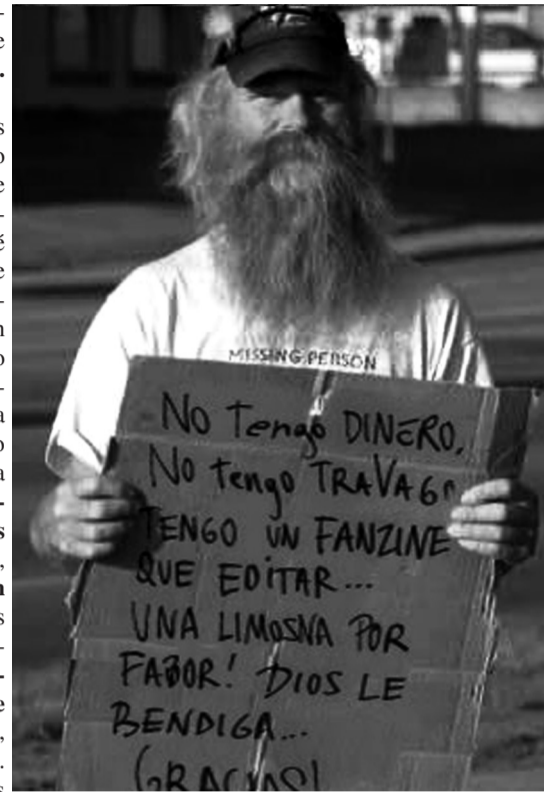 MISSING PERSON
NO Tengo DINERO,
NO tengo TRAVAGO
TENGO UN FANZINE
QUE EDITAR...
UNA LIMOSNA POR
FABOR! DIOS LE
BENDIGA...
GRACIAS!